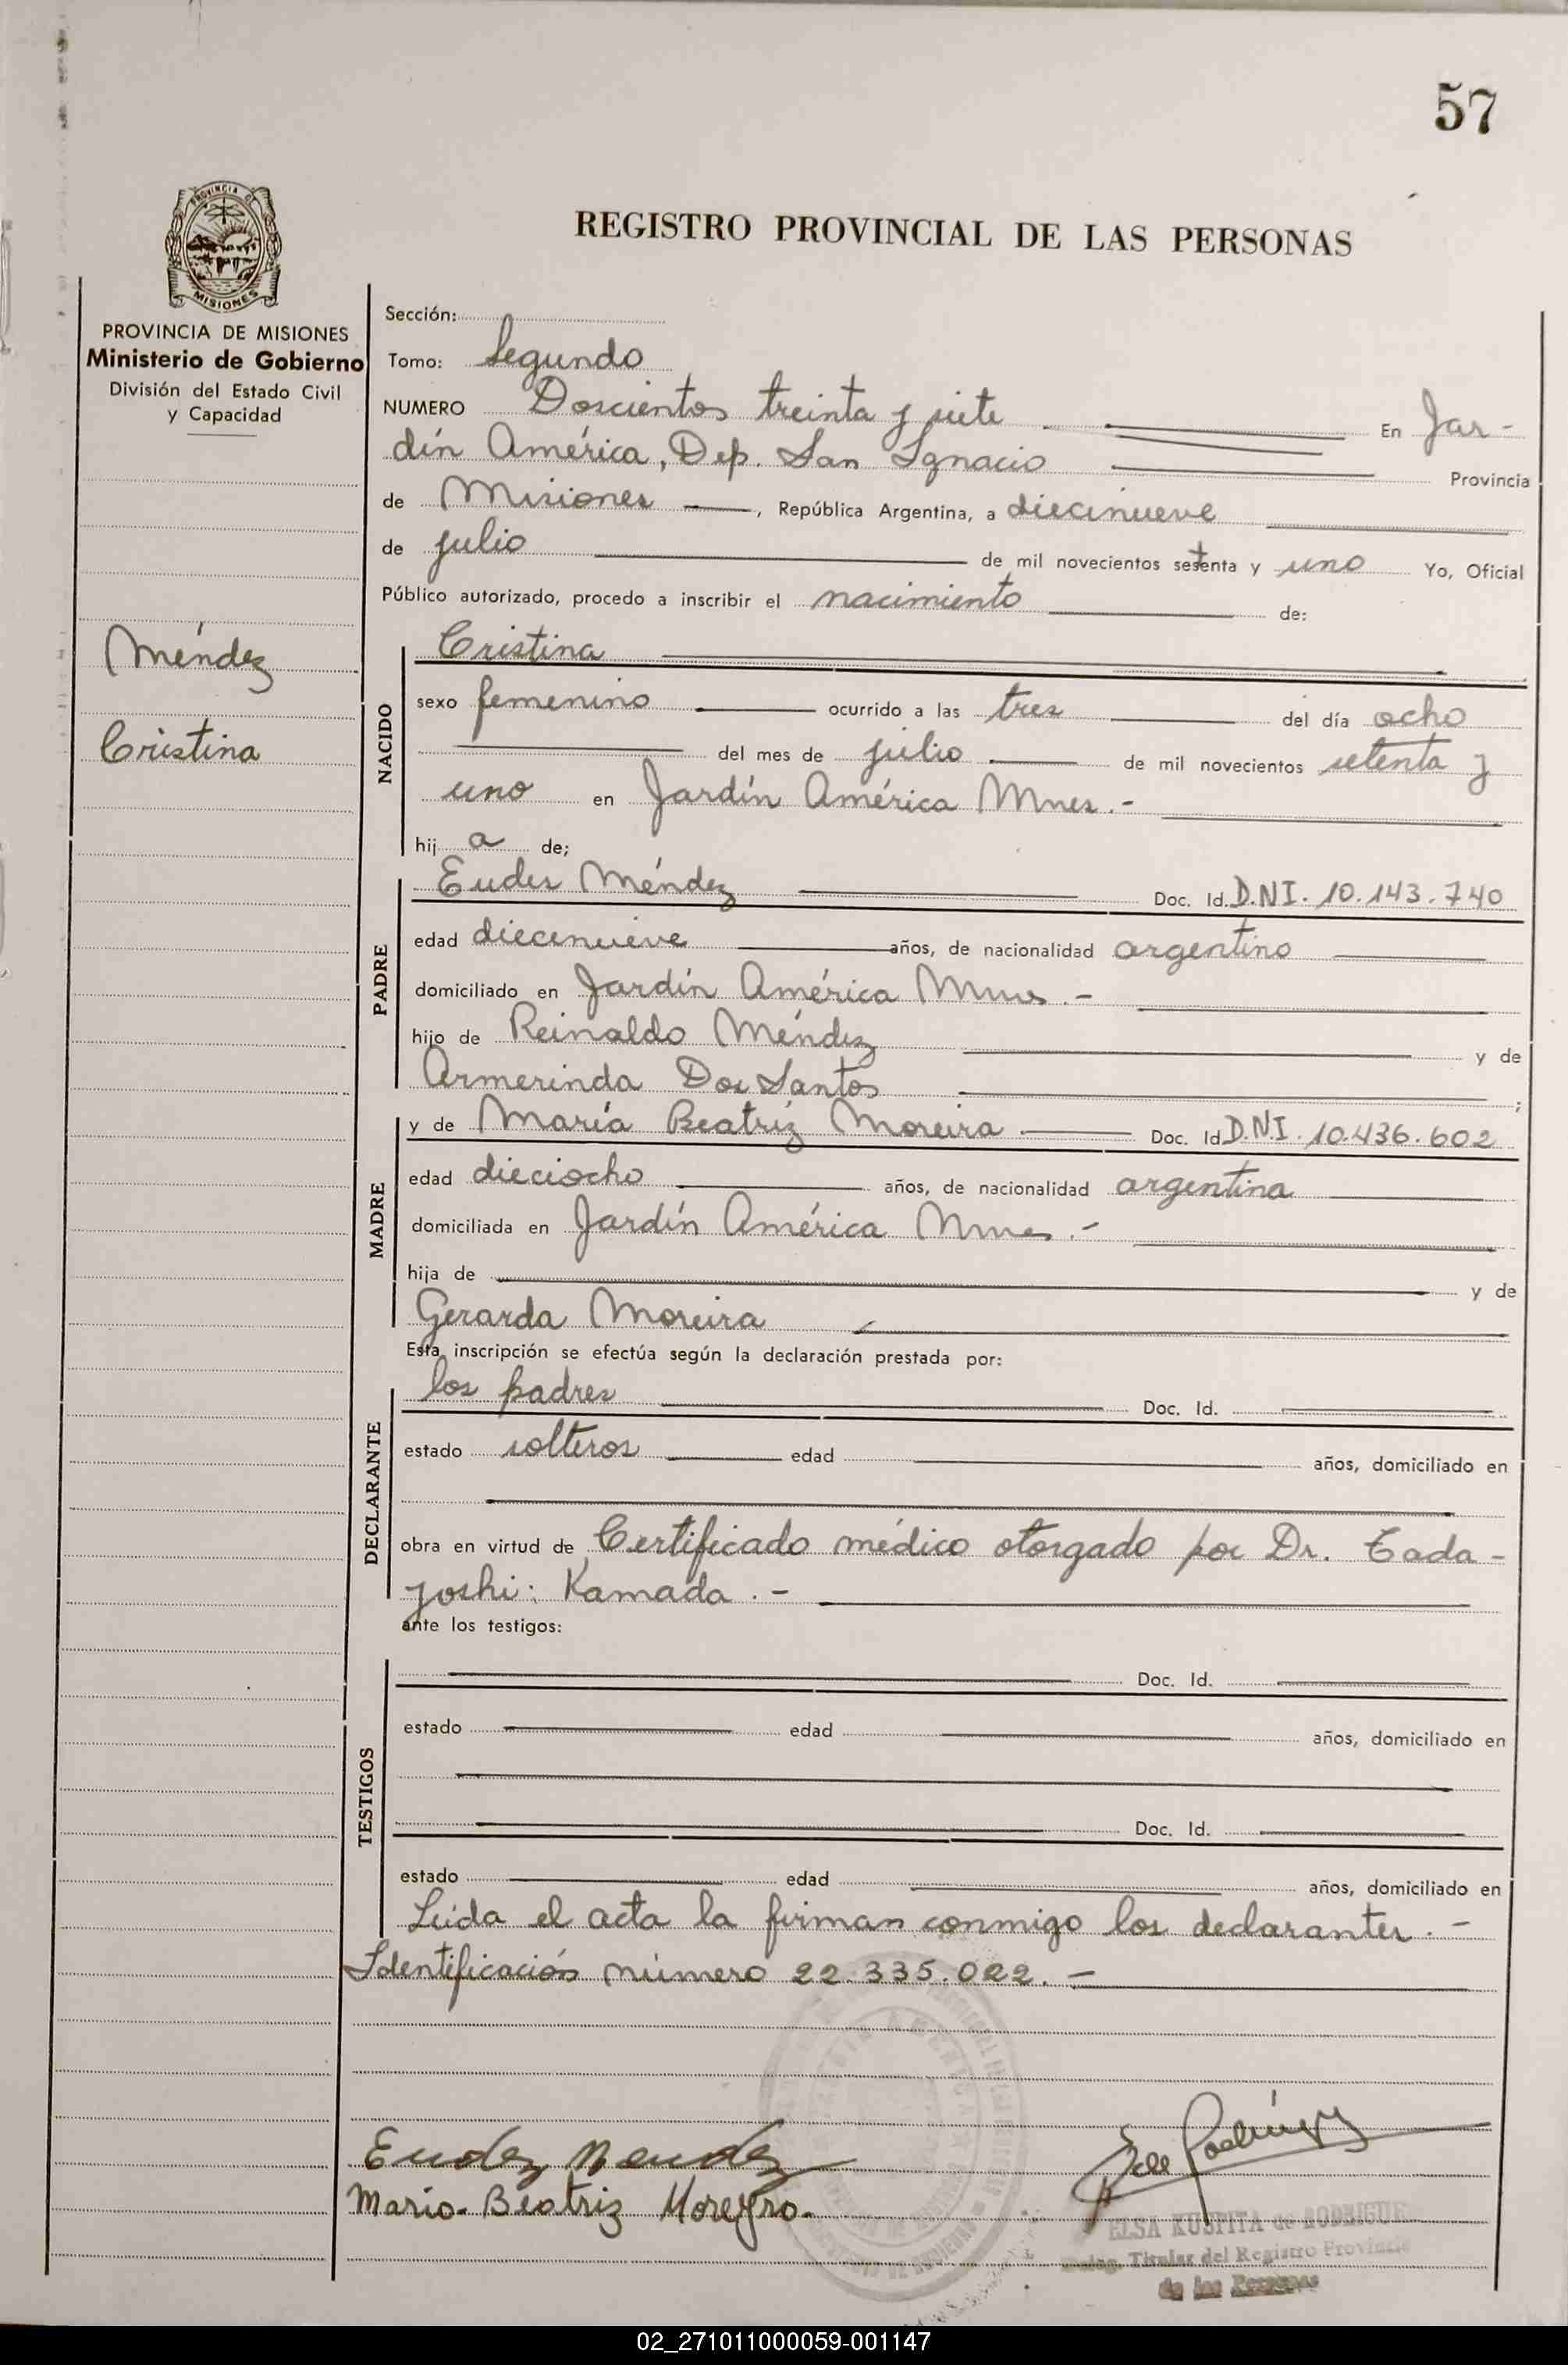 57
REGISTRO PROVINCIAL DE LAS PERSONAS
PROVINCIA DE MISIONES
Ministerio de Gobierno
División del Estado Civil
y Capacidad
Méndez
Cristina
Sección:
Tomo: Segundo
NUMERO Doscientos treinta y siete En Jar-
dín América, Dep. San Ignacio Provincia
de Misiones, República Argentina, a diecinueve
de julio de mil novecientos setenta y uno Yo, Oficial
Público autorizado, procedo a inscribir el nacimiento de:
NACIDO
Cristina
sexo femenino ocurrido a las tres del día ocho
del mes de julio de mil novecientos setenta y
uno en Jardín América Mnes.-
hij a de;
PADRE
Eudes Méndez Doc. Id. D.NI. 10.143.740
edad diecinueve años, de nacionalidad argentino
domiciliado en Jardín América Mnes.-
hijo de Reinaldo Méndez y de
Armerinda Dos Santos ;
MADRE
y de María Beatríz Moreira Doc. Id D.N.I. 10.436.602
edad dieciocho años, de nacionalidad argentina
domiciliada en Jardín América Mnes.-
hija de y de
Gerarda Moreira
Esta inscripción se efectúa según la declaración prestada por:
DECLARANTE
los padres Doc. Id.
estado solteros edad años, domiciliado en
obra en virtud de Certificado médico otorgado por Dr. Tada-
yoshi: Kamada.-
ante los testigos:
TESTIGOS
Doc. Id.
estado edad años, domiciliado en
Doc. Id.
estado edad años, domiciliado en
Leída el acta la firman conmigo los declarantes.-
Identificación número 22.335.022.-
Eudez Mendez
Maria Beatriz Moreyra.
ELSA KUSPITA de RODRIGUE
Titular del Registro Provincia
de las Personas
02_271011000059-001147